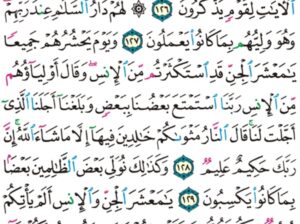 ٱلۡأٓيَٰتِ لِقَوۡمٖ يَذَّكَّرُونَ ١٢٦ ۞ لَهُمۡ دَارُ ٱلسَّلَٰمِ عِندَ رَبِّهِمۡۖ
وَهُوَ وَلِيُّهُم بِمَا كَانُواْ يَعۡمَلُونَ ١٢٧ وَيَوۡمَ يَحۡشُرُهُمۡ جَمِيعٗا
يَٰمَعۡشَرَ ٱلۡجِنِّ قَدِ ٱسۡتَكۡثَرۡتُم مِّنَ ٱلۡإِنسِۖ وَقَالَ أَوۡلِيَآؤُهُم
مِّنَ ٱلۡإِنسِ رَبَّنَا ٱسۡتَمۡتَعَ بَعۡضُنَا بِبَعۡضٖ وَبَلَغۡنَآ أَجَلَنَا ٱلَّذِيٓ
أَجَّلۡتَ لَنَاۚ قَالَ ٱلنَّارُ مَثۡوَىٰكُمۡ خَٰلِدِينَ فِيهَآ إِلَّا مَا شَآءَ ٱللَّهُۗ إِنَّ
رَبَّكَ حَكِيمٌ عَلِيمٞ ١٢٨ وَكَذَٰلِكَ نُوَلِّي بَعۡضَ ٱلظَّٰلِمِينَ بَعۡضَۢا
بِمَا كَانُواْ يَكۡسِبُونَ ١٢٩ يَٰمَعۡشَرَ ٱلۡجِنِّ وَٱلۡإِنسِ أَلَمۡ يَأۡتِكُمۡ